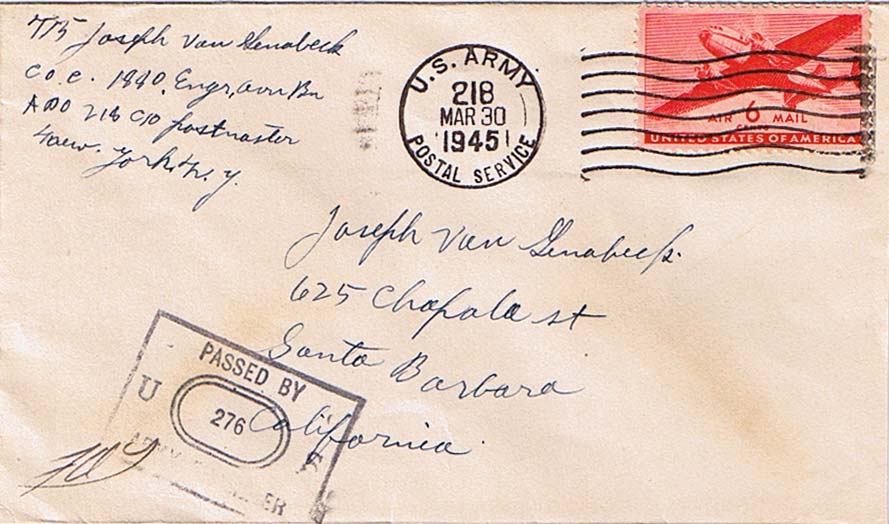 T/5 Joseph Van Genabeek
Co. C. 1880. Engr, avn Bn
APO 218 c/o postmaster
New. York. N. y.
U.S. ARMY
218
MAR 30
1945
POSTAL SERVICE
AIR 6 MAIL
CENTS
UNITED STATES OF AMERICA
Joseph Van Genabeek.
625 Chapala st
Santa Barbara
California.
PASSED BY
U S
276
ARMY EXAMINER